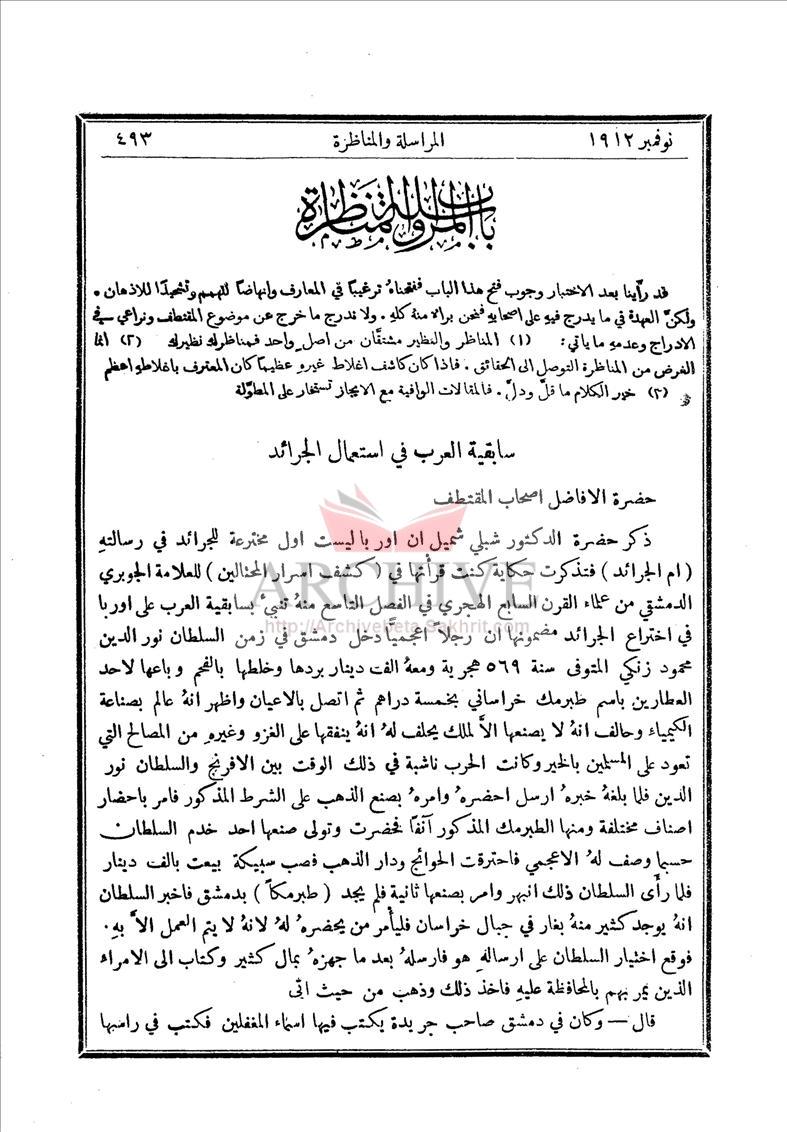 نوفمبر ١٩١٢ المراسلة والمناظرة ٤٩٣
باب المراسلة والمناظرة
قد رأينا بعد الاختبار وجوب فتح هذا الباب ففتحناهُ ترغيبًا في المعارف وانهاضًا للهمم وتشحيذًا للاذهان ٠
ولكنَّ العهدة في ما يدرج فيهِ على اصحابهِ فنحن براءٌ منهُ كلهِ ٠ ولا ندرج ما خرج عن موضوع المقتطف ونراعي في
الادراج وعدمهِ ما ياتي: (١) المناظر والنظير مشتقَّان من اصل واحد فمناظرك نظيرك (٢) انما
الغرض من المناظرة التوصل الى الحقائق ٠ فاذا كان كاشف اغلاط غيرهِ عظيمًا كان المعترف باغلاطهِ اعظم
(٣) خير الكلام ما قلَّ ودلَّ ٠ فالمقالات الوافية مع الايجاز تستخار على المطوَّلة
سابقية العرب في استعمال الجرائد
حضرة الافاضل اصحاب المقتطف
ذكر حضرة الدكتور شبلي شميل ان اوربا ليست اول مخترعة للجرائد في رسالتهِ
(ام الجرائد) فتذكرت حكاية كنت قرأتها في (كشف اسرار المحتالين) للعلامة الجوبري
ARCHIVE
الدمشقي من علماء القرن السابع الهجري في الفصل التاسع منهُ تنبيءُ بسابقية العرب على اوربا
http://Archivebeta.Sakhrit.com
في اختراع الجرائد مضمونها ان رجلاً اعجميًّا دخل دمشق في زمن السلطان نور الدين
محمود زنكي المتوفى سنة ٥٦٩ هجرية ومعهُ الف دينار بردها وخلطها بالفحم وباعها لاحد
العطارين باسم طبرمك خراساني بخمسة دراهم ثم اتصل بالاعيان واظهر انهُ عالم بصناعة
الكيمياء وحالف انهُ لا يصنعها الاَّ لملك يحلف لهُ انهُ ينفقها على الغزو وغيرهِ من المصالح التي
تعود على المسلمين بالخير وكانت الحرب ناشبة في ذلك الوقت بين الافرنج والسلطان نور
الدين فلما بلغهُ خبرهُ ارسل احضرهُ وامرهُ بصنع الذهب على الشرط المذكور فامر باحضار
اصناف مختلفة ومنها الطبرمك المذكور آنفًا فحضرت وتولى صنعها احد خدم السلطان
حسبما وصف لهُ الاعجمي فاحترقت الحوائج ودار الذهب فصب سبيكة بيعت بالف دينار
فلما رأى السلطان ذلك انبهر وامر بصنعها ثانية فلم يجد (طبرمكاً) بدمشق فاخبر السلطان
انهُ يوجد كثير منهُ بغار في جبال خراسان فليأمر من يحضرهُ لهُ لانهُ لا يتم العمل الاَّ بهِ ٠
فوقع اختيار السلطان على ارسالهِ هو فارسلهُ بعد ما جهزهُ بمال كثير وكتاب الى الامراء
الذين يمر بهم بالمحافظة عليهِ فاخذ ذلك وذهب من حيث اتى
قال — وكان في دمشق صاحب جريدة يكتب فيها اسماء المغفلين فكتب في راسها